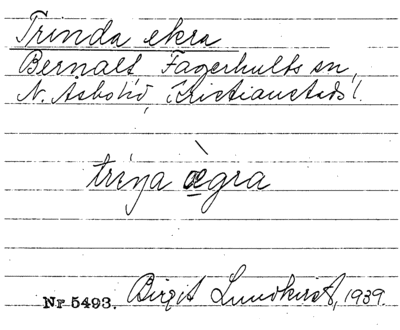 Trinda ekra
Bernalt Fagerhults sn,
N. Åsbohd, Kristianstads l.
triŋa ægra
Nr 5493. Birgit Lundkvist, 1939.